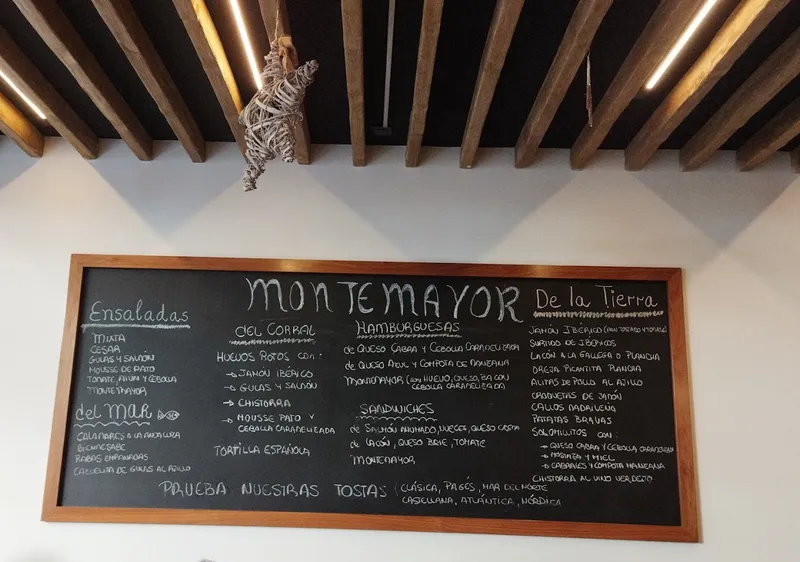 MONTEMAYOR
Ensaladas
MIXTA
CESAR
GULAS Y SALMÓN
MOUSSE DE PATO
TOMATE, ATUN Y CEBOLLA
MONTEMAYOR
del MAR
CALAMARES A LA ANDALUZA
BIENMESABE
RABAS EMPANADAS
CAZUELITA DE GULAS AL AJILLO
DEL CORRAL
HUEVOS ROTOS CON:
→ JAMÓN IBÉRICO
→ GULAS Y SALMÓN
→ CHISTORRA
→ MOUSSE PATO Y
CEBOLLA CARAMELIZADA
TORTILLA ESPAÑOLA
HAMBURGUESAS
de QUESO CABRA Y CEBOLLA CARAMELIZADA
de QUESO AZUL Y COMPOTA DE MANZANA
MONTEMAYOR (CON HUEVO, QUESO,
CEBOLLA CARAMELIZADA
SANDWICHES
de SALMÓN AHUMADO, NUECES, QUESO
de LACÓN, QUESO BRIE, TOMATE
MONTEMAYOR
De la Tierra
JAMÓN IBÉRICO (PAN TOSTADO Y TOMATE)
SURTIDO DE IBÉRICOS
LACÓN A LA GALLEGA O PLANCHA
OREJA PICANTITA PLANCHA
ALITAS DE POLLO AL AJILLO
CROQUETAS DE JAMÓN
CALLOS MADRILEÑA
PATATAS BRAVAS
SOLOMILLITOS CON:
→ QUESO CABRA Y CEBOLLA CARAMELIZADA
→ MOSTAZA Y MIEL
→ CABRALES Y COMPOTA MANZANA
CHISTORRA AL VINO VERDEJO
PRUEBA NUESTRAS TOSTAS (CLÁSICA, PAGÉS, MAR DEL NORTE
CASTELLANA, ATLÁNTICA, NÓRDICA